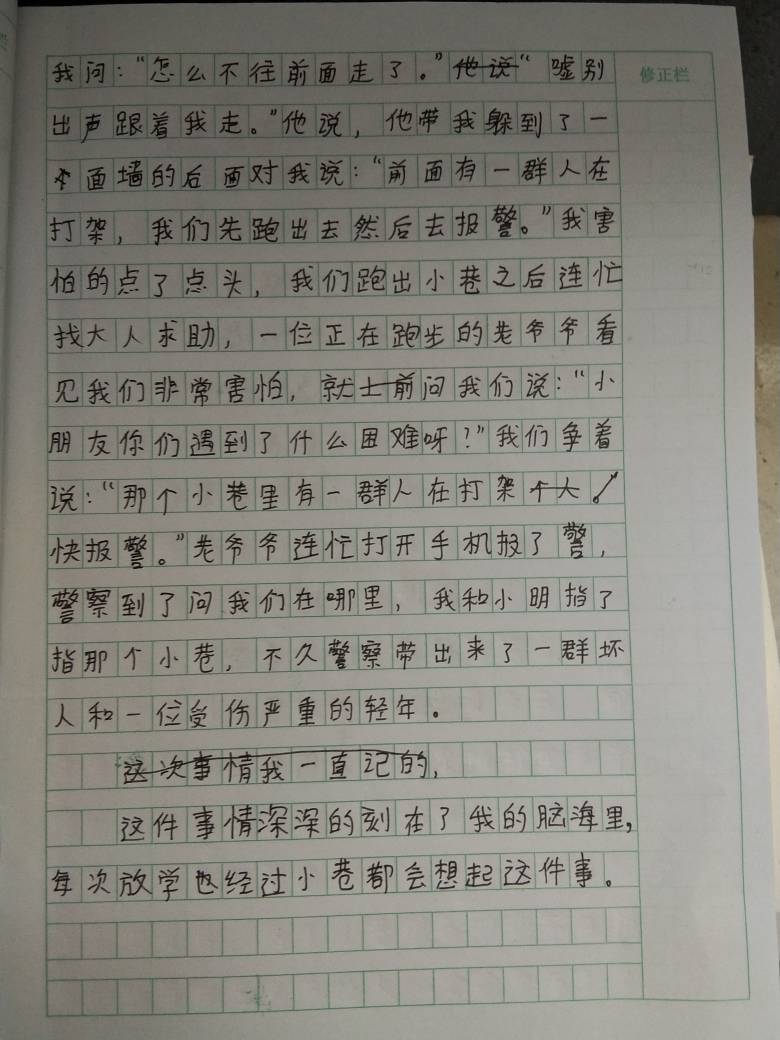 修正栏
我问：“怎么不往前面走了。”他说“嘘别
出声跟着我走。”他说，他带我躲到了一
个面墙的后面对我说：“前面有一群人在
打架，我们先跑出去然后去报警。”我害
怕的点了点头，我们跑出小巷之后连忙
找大人求助，一位正在跑步的老爷爷看
见我们非常害怕，就士前问我们说：“小
朋友你们遇到了什么困难呀？”我们争着
说：“那个小巷里有一群人在打架个人！
快报警。”老爷爷连忙打开手机报了警，
警察到了问我们在哪里，我和小明指了
指那个小巷，不久警察带出来了一群坏
人和一位受伤严重的轻年。
这次事情我一直记的，
这件事情深深的刻在了我的脑海里，
每次放学也经过小巷都会想起这件事。